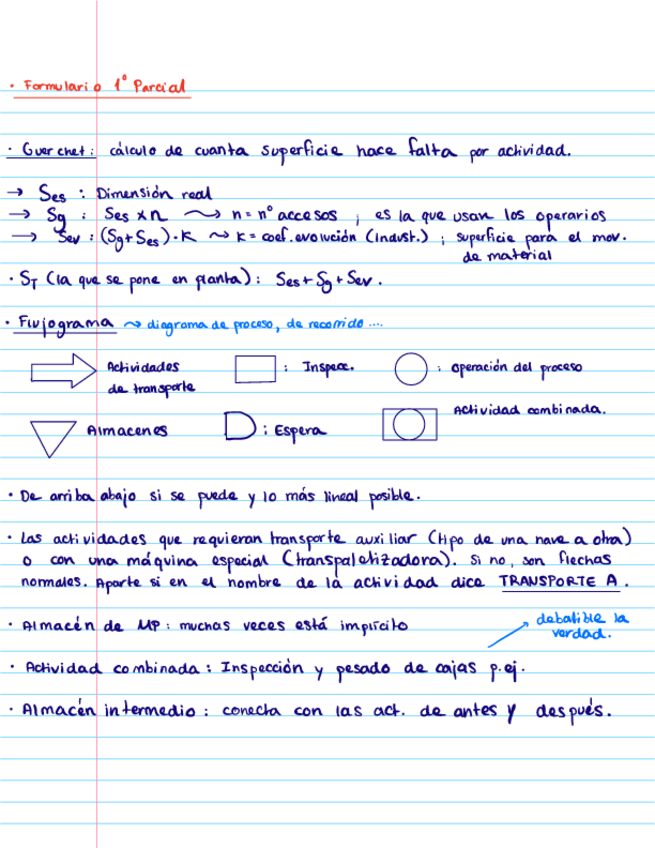 · Formulario 1º Parcial
· Guerchet: cálculo de cuanta superficie hace falta por actividad.
→ Ses : Dimensión real
→ Sg : Ses x n ⟿ n = nº accesos ; es la que usan los operarios
→ Sev : (Sg + Ses) · K ⟿ K = coef. evolución (indust.) ; superficie para el mov. de material
· ST (la que se pone en planta) : Ses + Sg + Sev .
· Flujograma ⟿ diagrama de proceso, de recorrido ....
Actividades de transporte
: Inspecc.
: Operación del proceso
Almacenes
: Espera
Actividad combinada.
· De arriba abajo si se puede y lo más lineal posible.
· Las actividades que requieran transporte auxiliar (tipo de una nave a otra)
o con una máquina especial (transpaletizadora). Si no, son flechas
normales. Aparte si en el nombre de la actividad dice TRANSPORTE A .
· Almacén de MP : muchas veces está implícito
debatible la verdad.
· Actividad combinada : Inspección y pesado de cajas p.ej.
· Almacén intermedio : conecta con las act. de antes y después.